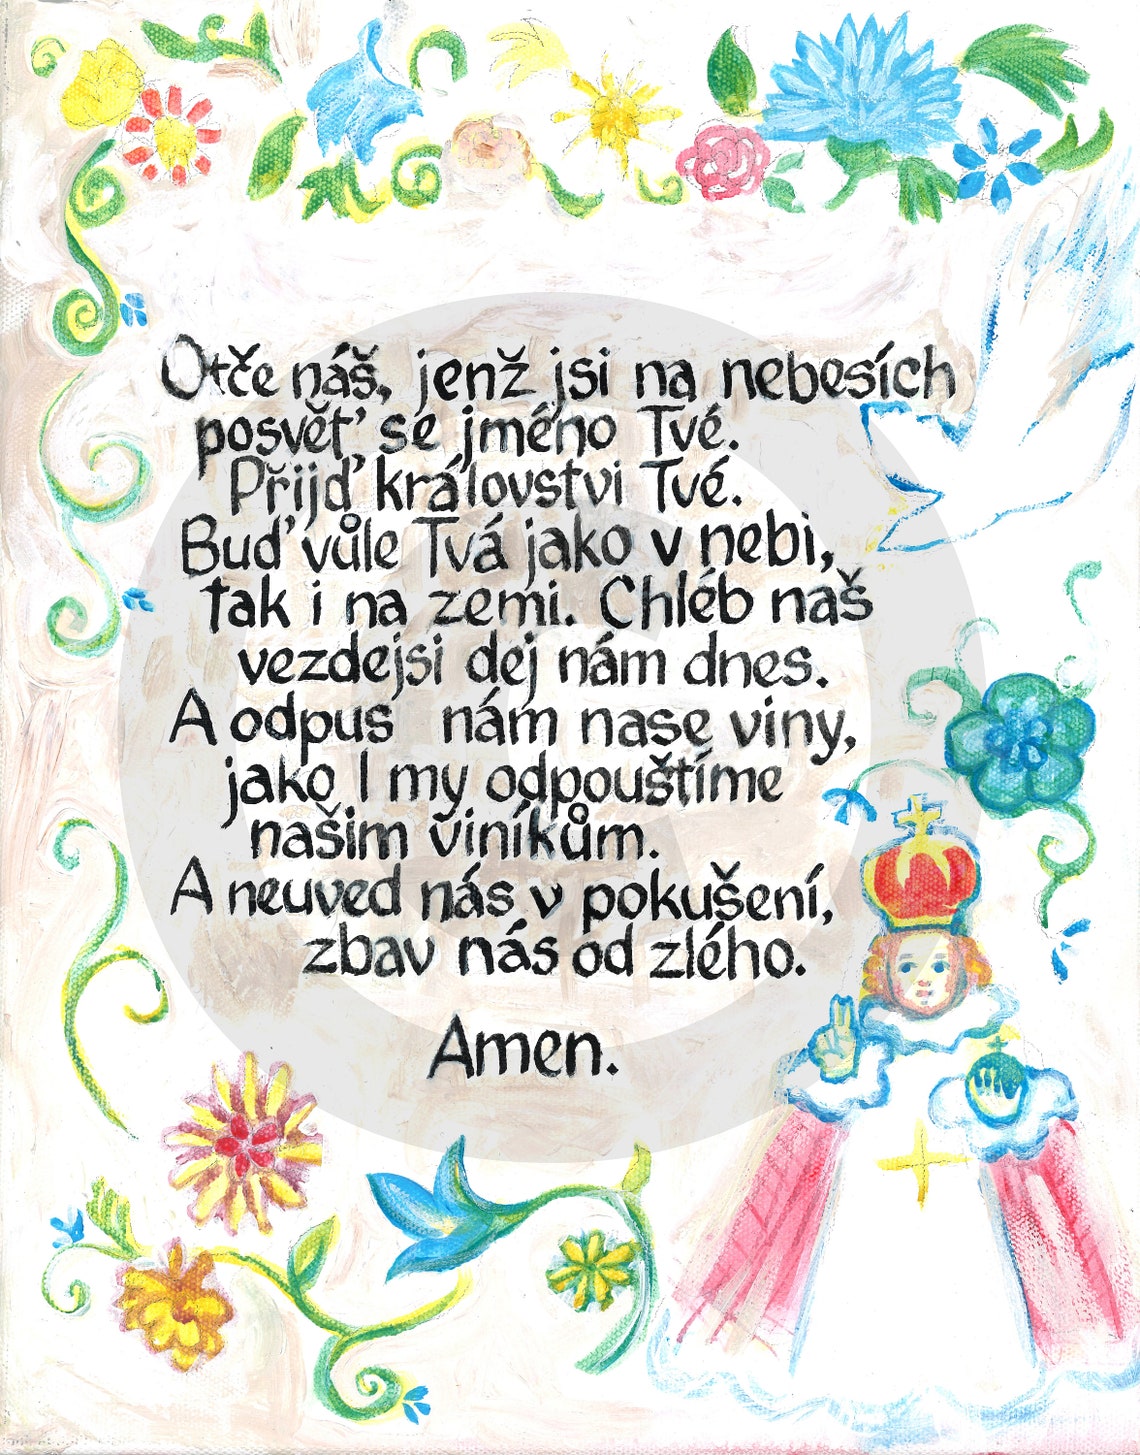 Otče náš, jenž jsi na nebesích
posvěť se jméno Tvé.
Přijď královstvi Tvé.
Buď vůle Tvá jako v nebi,
tak i na zemi. Chléb naš
vezdejsi dej nám dnes.
A odpus nám nase viny,
jako I my odpouštíme
našim viníkům.
A neuved nás v pokušení,
zbav nás od zlého.
Amen.